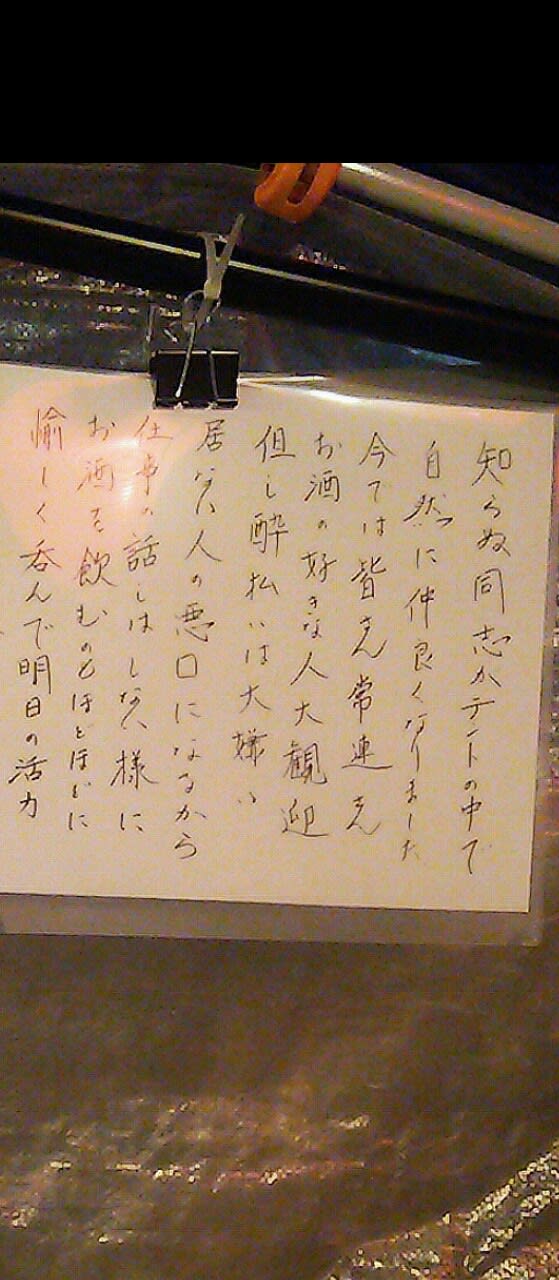 知らぬ同志がテントの中で
自然に仲良くなりました
今では皆さん常連さん
お酒の好きな人大観迎
但し酔払いは大嫌い
居ない人の悪口になるから
仕事の話しはしない様に
お酒を飲むのもほどほどに
愉しく呑んで明日の活力